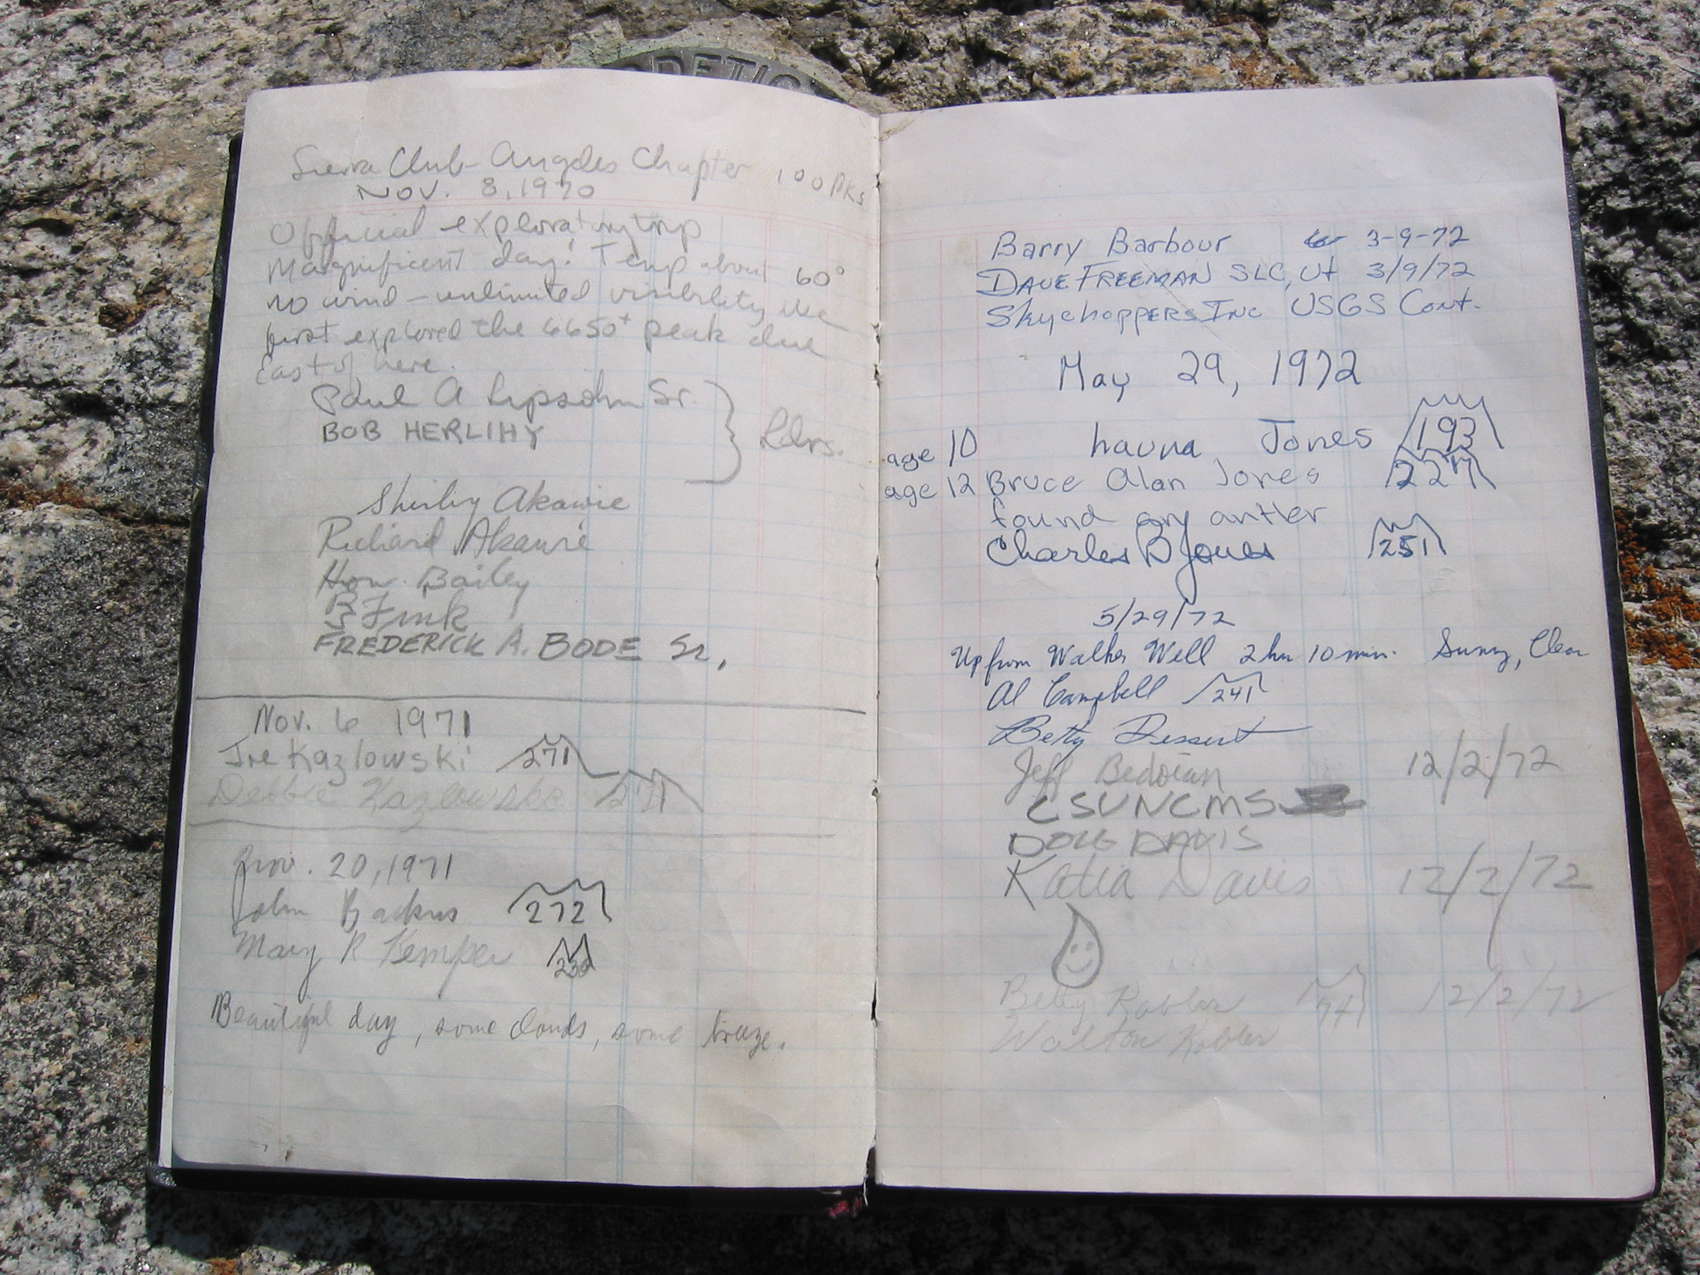 ODETIC
Sierra Club - Angeles Chapter 100 Pks
NOV. 8, 1970
Official exploratory trip
Magnificent day! Temp about 60°
no wind - unlimited visibility We
first explored the 6650+ peak due
east of here.
Paul A Lipsohn Sr.
BOB HERLIHY
Ldrs.
Shirley Akawie
Richard Akawie
How. Bailey
B Fink
FREDERICK A. BODE Sr,
Nov. 6 1971
Joe Kazlowski 271
Debbie Kazlowski 271
Nov. 20, 1971
John Backus 272
Mary R Kemper
Beautiful day, some clouds, some breeze.
Barry Barbour 3-9-72
DAVE FREEMAN SLC, Ut 3/9/72
Skychoppers Inc USGS Cont.
May 29, 1972
age 10 hauna Jones 193
age 12 Bruce Alan Jones 227
found an antler
Charles B Jones 251
5/29/72
Up from Walker Well 2 hr 10 min. Sunny, Clear
Al Campbell 241
Betty Dessert
Jeff Bedoian 12/2/72
CSUNCMS
DOUG DAVIS
Katia Davis 12/2/72
Betty Kabler 12/2/72
Walton Kabler